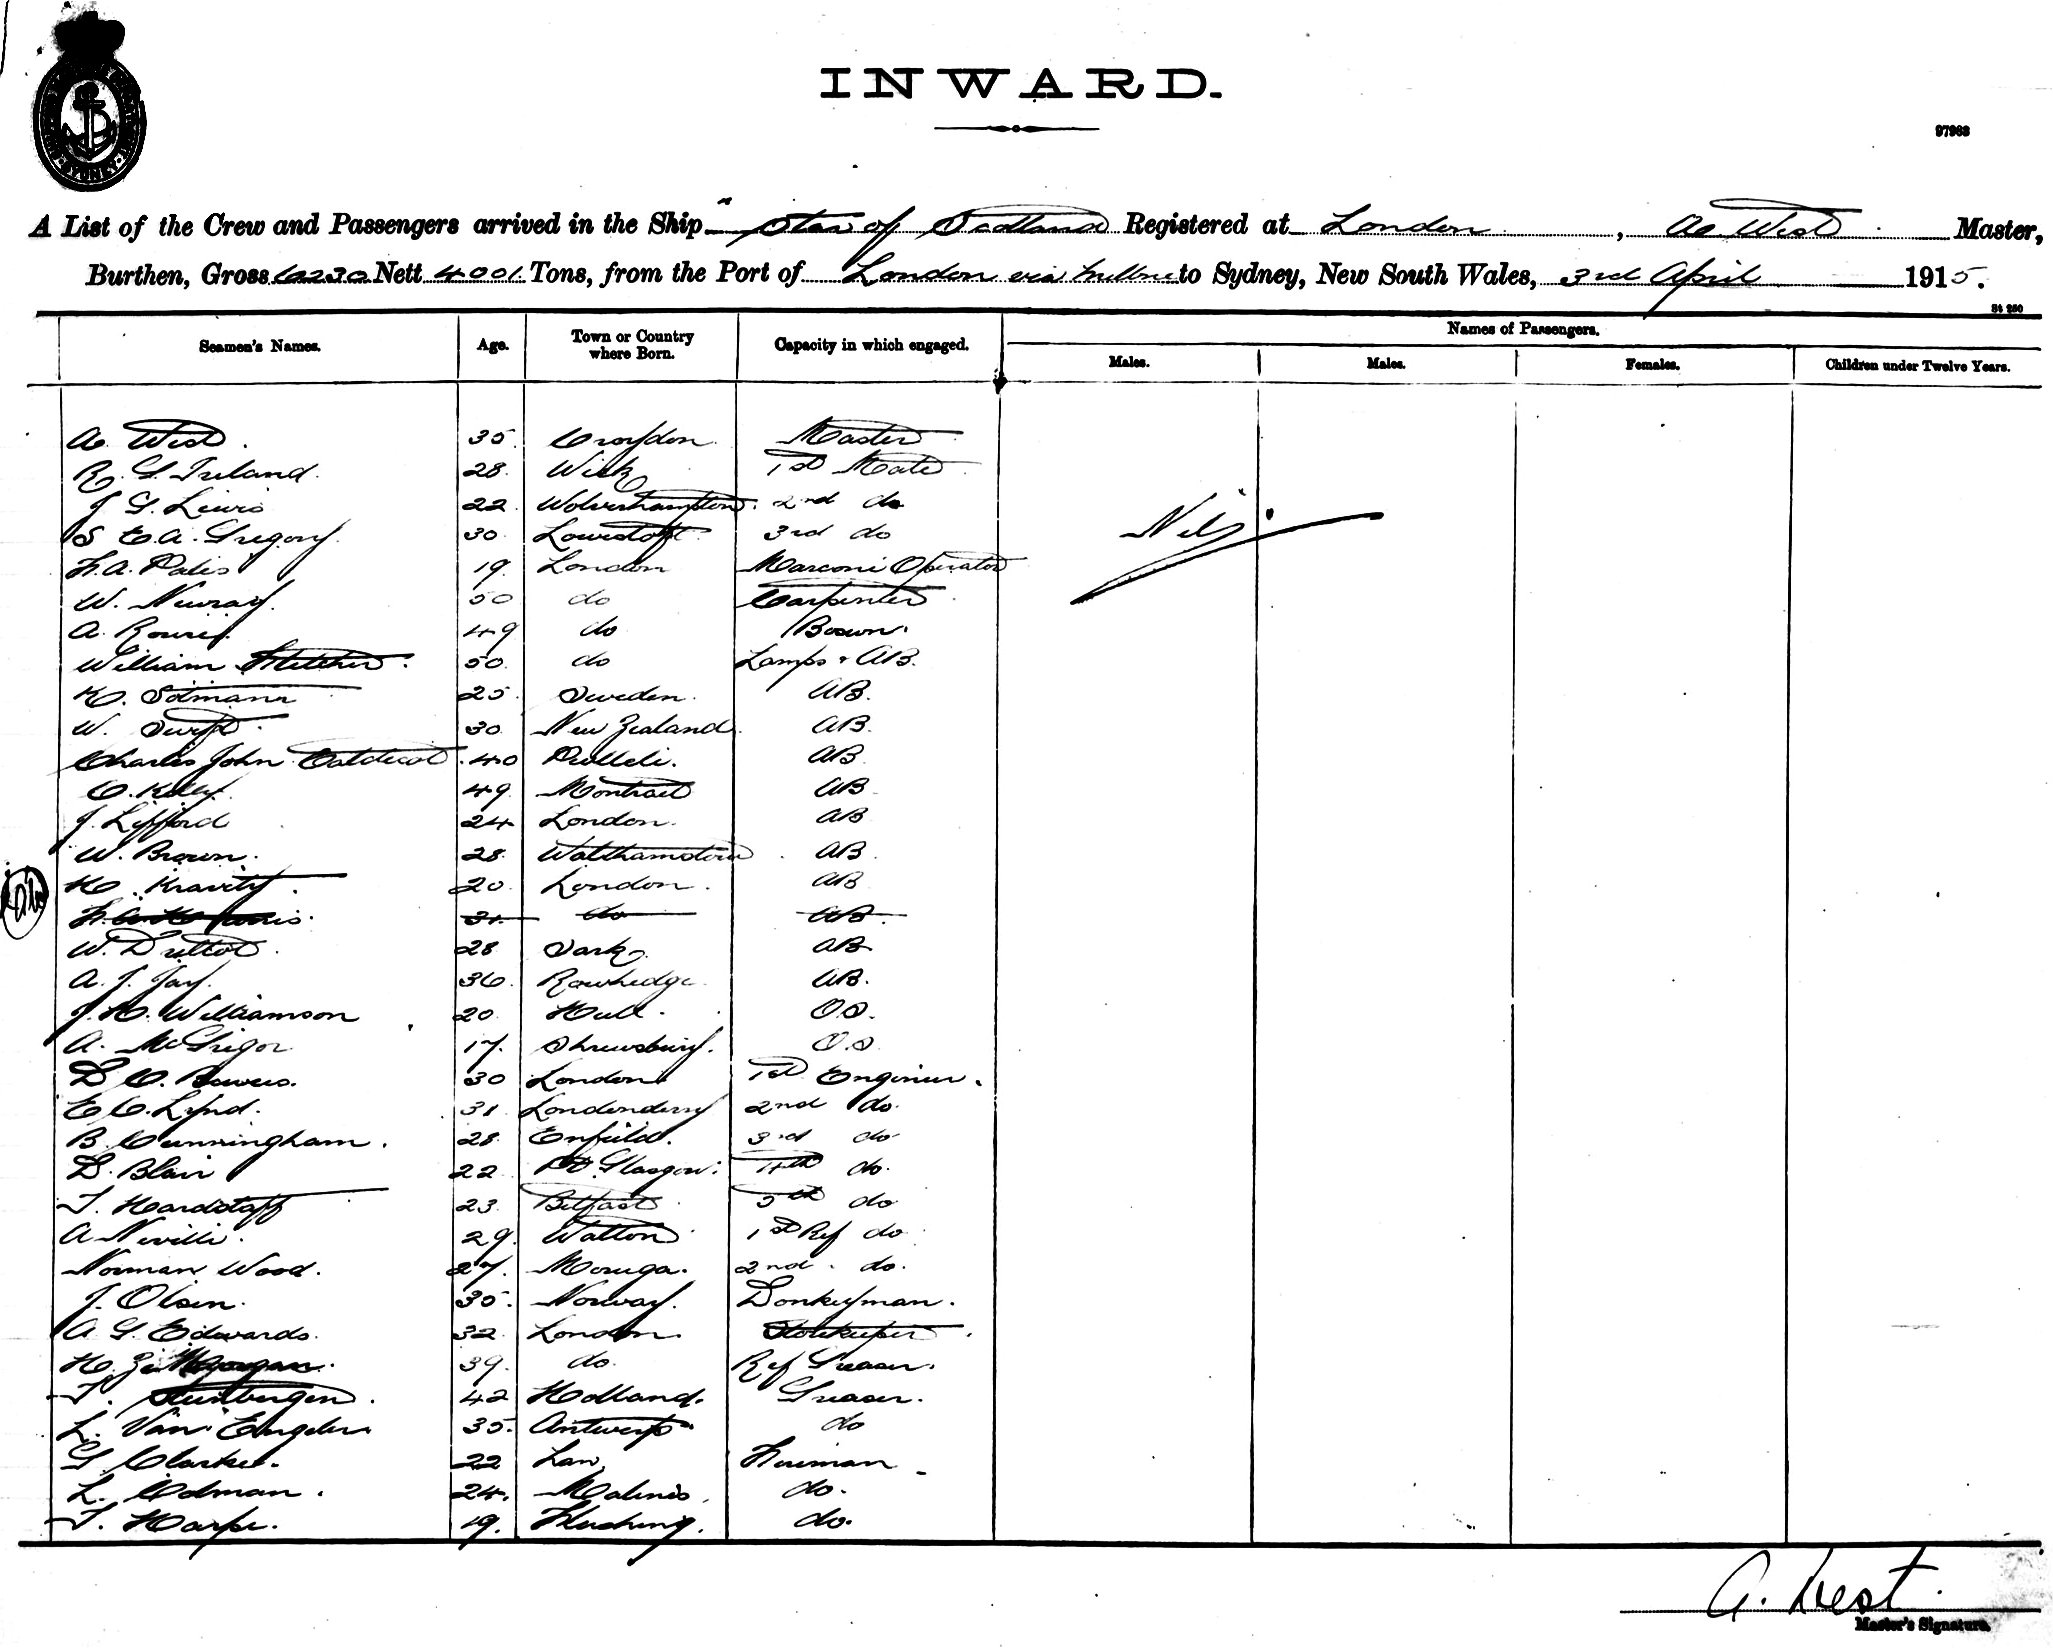 INWARD.
97963
A List of the Crew and Passengers arrived in the Ship "Star of Scotland Registered at London, A. West Master,
Burthen, Gross 6230 Nett 4001 Tons, from the Port of London via Melbne to Sydney, New South Wales, 3rd April 1915.
St 250
Seamen's Names. Age. Town or Country where Born. Capacity in which engaged. Names of Passengers.
Males. Males. Females. Children under Twelve Years.
A. West. 35. Croydon. Master
R. G. Ireland. 28. Wick 1st Mate
J G. Lewis 22. Wolverhampton. 2nd do
S E. A. Gregory. 30. Lowestoft. 3rd do
Nil
F. A. 19. London Marconi Operator
W. 50 do Carpenter
A. 49 do Bosun.
William Fletcher. 50. do Lamps & AB.
25. Sweden. AB.
W. Swift. 30. New Zealand. AB.
Charles John 40 Pwllheli. AB
C. Kelly. 49. Montreal AB
J. Lifford 24 London. AB
W. Brown. 28. Walthamstow. AB.
20. London. AB
31. do AB.
W. 28 Sark. AB
A. J. Jay. 36. Rowhedge AB.
J. H. Williamson 20. Hull. O.S.
A. McGregor 17. Shrewsbury. O.S
D C. Bowers. 30 London. 1st Engineer.
E C. Lynd. 31. Londonderry 2nd do.
B. Cunningham. 28. Enfield. 3rd do
D. Blair 22. Pt Glasgow. 4th do.
T. Hardstaff 23. Belfast. 5th do
A Neville. 29. Watton 1st Ref do
Norman Wood. 27. 2nd. do.
J. Olsen. 35. Norway. Donkeyman.
A G. Edwards. 32. London. Storekeeper.
H. 39. do. Ref Greaser.
T. 42 Holland. Greaser.
L. Van 35. Antwerp. do
G. Clarke. 22 Fireman
L. 24. Malines. do.
T. Harpe. 19. Flushing. do.
A. West.
Master's Signature.